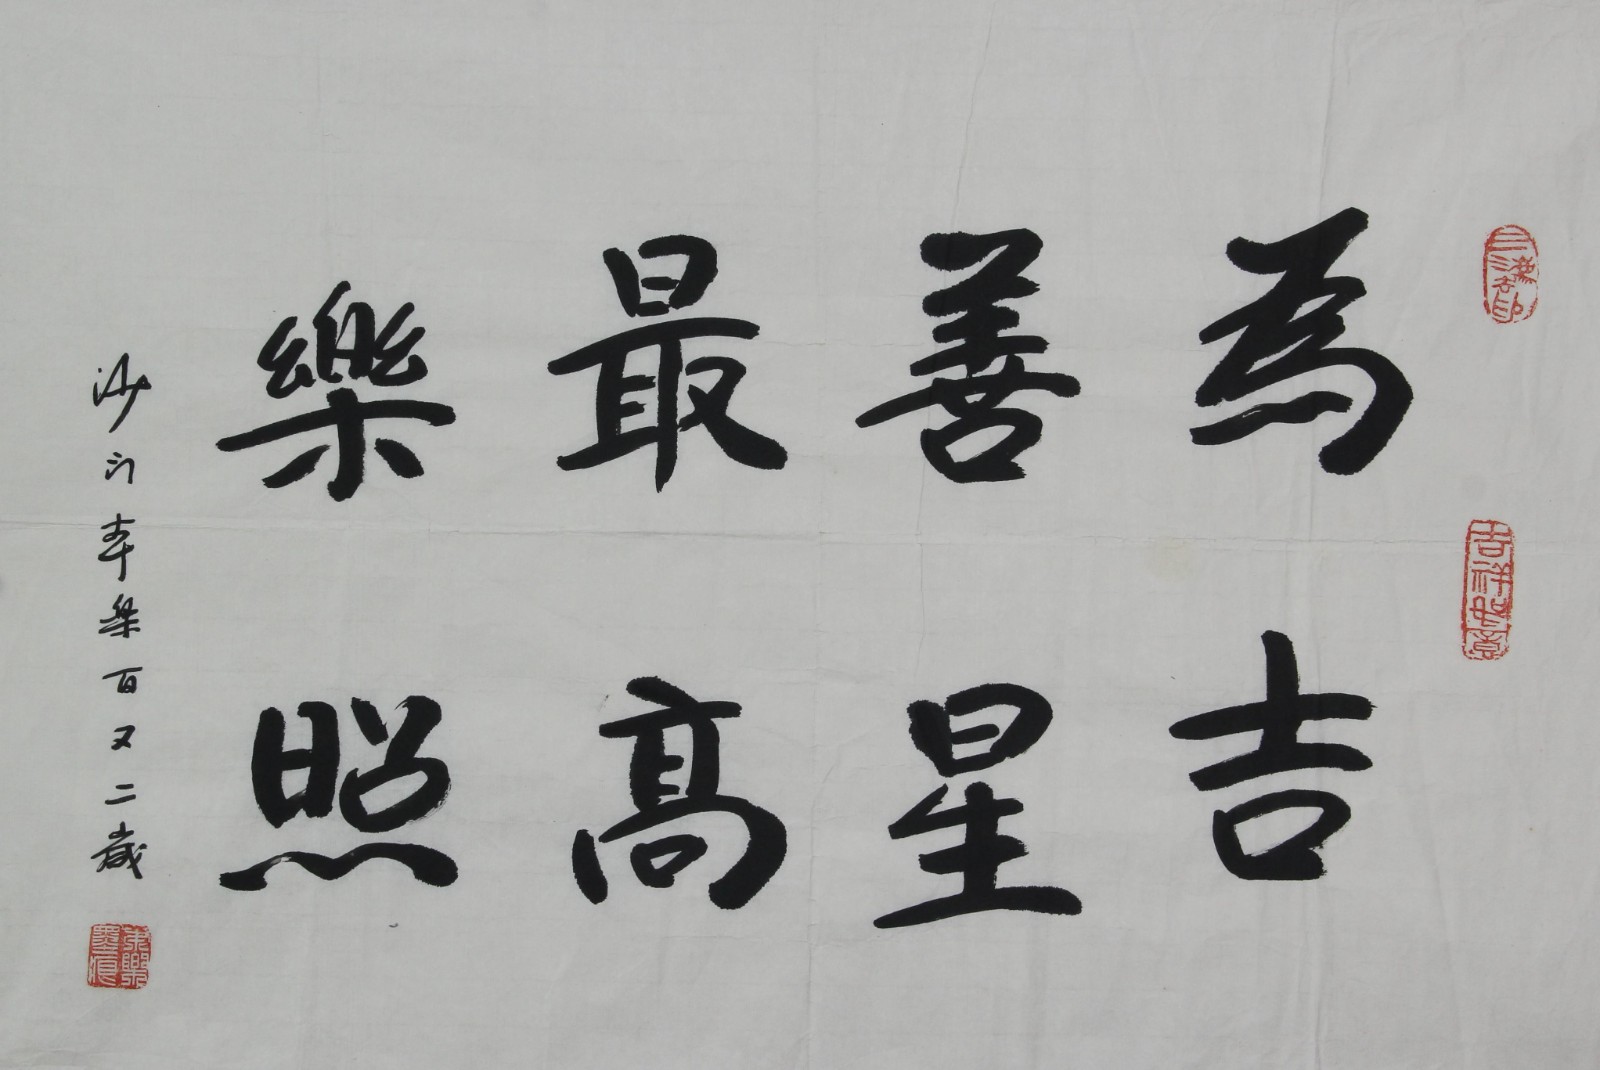 為善最樂
吉星高照
沙门夲樂百又二歲
吉祥如意